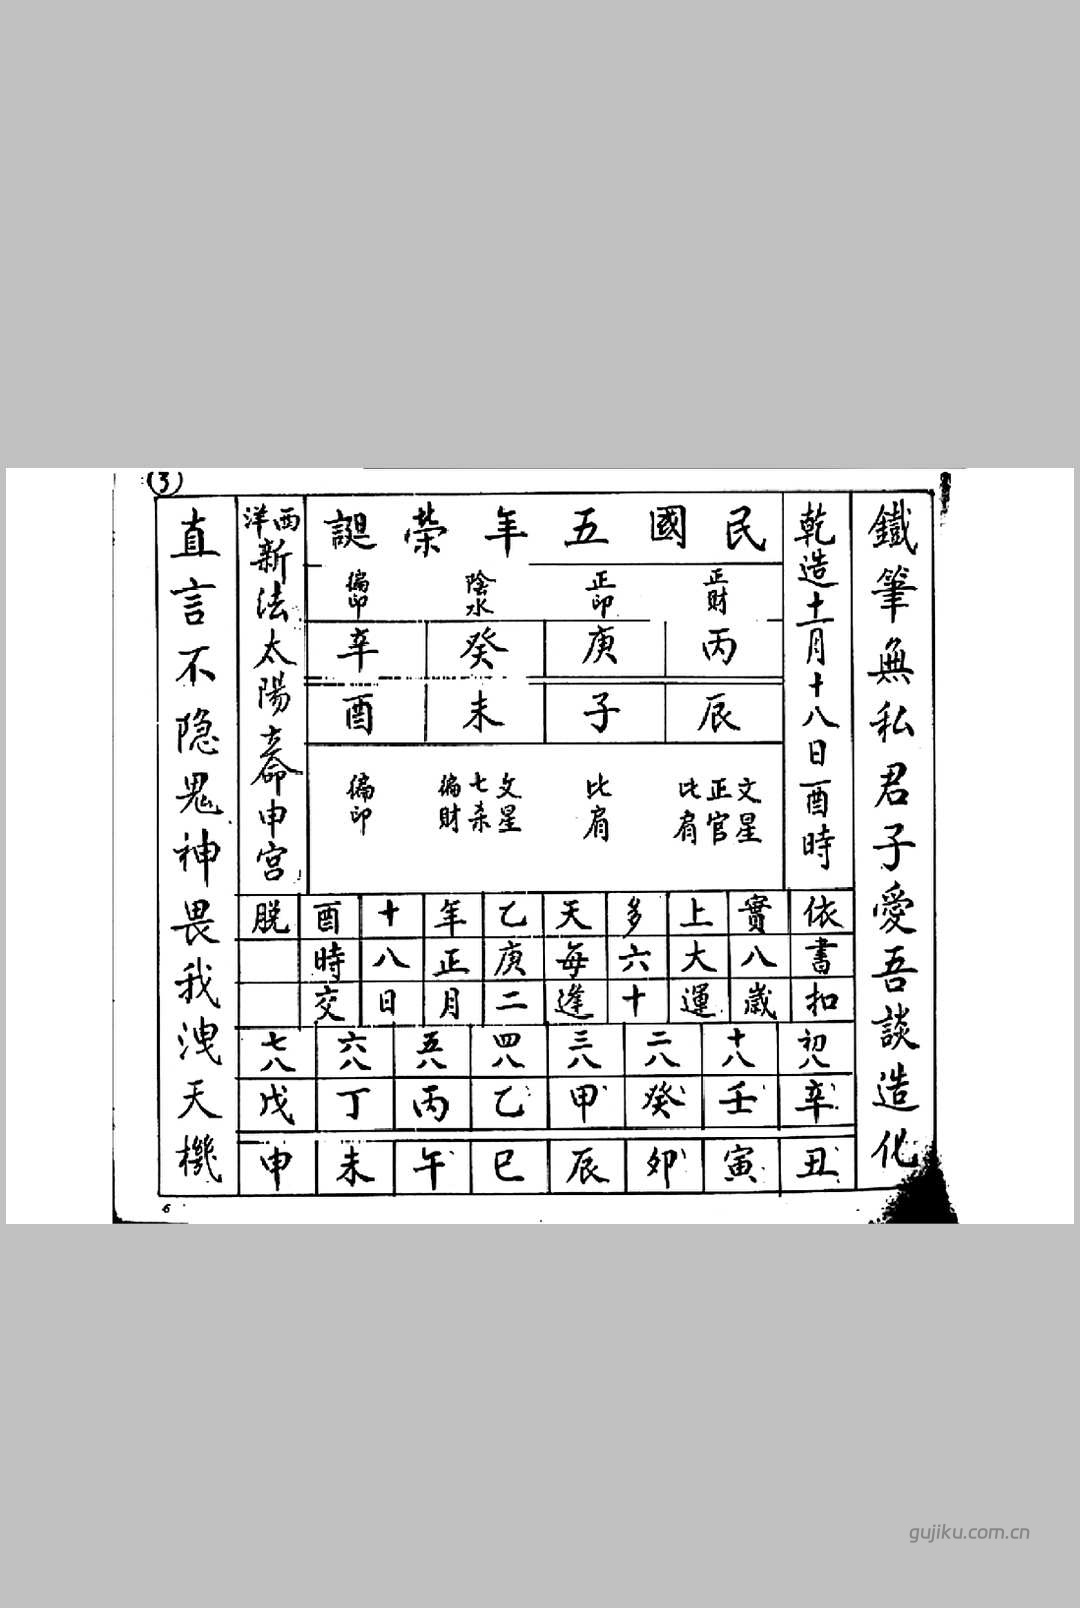 (3)
鐵筆無私君子愛吾談造化
乾造十一月十八日酉時
民國五年榮誕
正財 正印 陰水 偏印
丙 庚 癸 辛
辰 子 未 酉
文星 正官 比肩 比肩 文星 七杀 偏財 偏印
西洋新法太陽立命申宮
依書扣
實八歲
上大運
多六十
天每逢
乙庚二
年正月
十八日
酉時交
脱
初八 十八 二八 三八 四八 五八 六八 七八
辛 壬 癸 甲 乙 丙 丁 戊
丑 寅 卯 辰 巳 午 未 申
直言不隐鬼神畏我洩天機
6
gujiku.com.cn